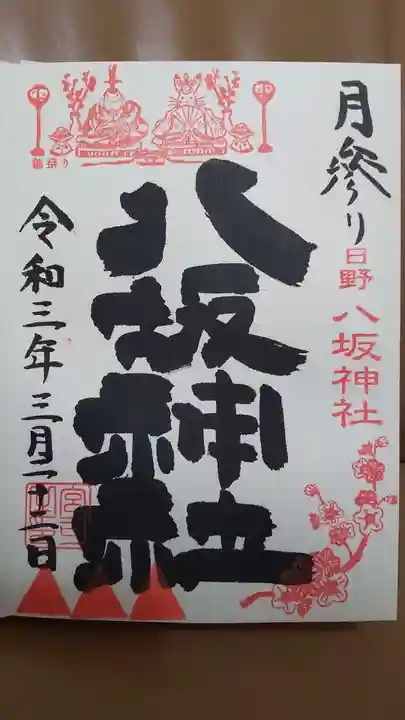 月参り
日野 八坂神社
八坂神社
令和三年三月二十三日
雛祭り